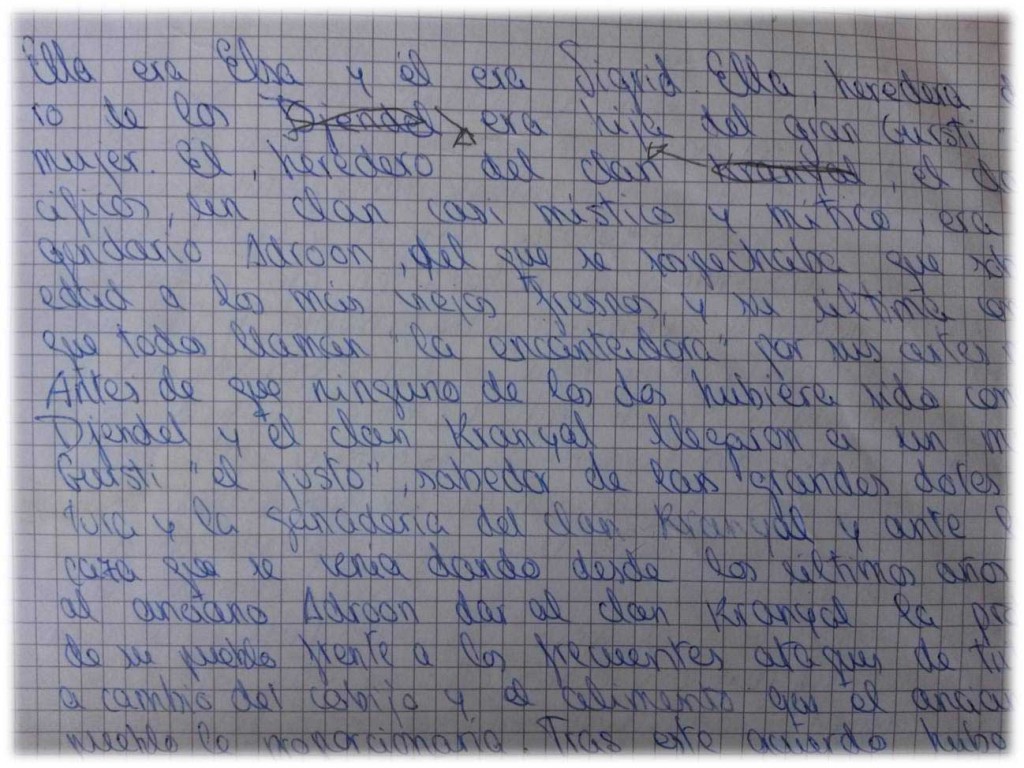 Ella era Elsa y él era Sigrid. Ella, heredera
ro de los Djendel era hija del gran Gursti
mujer. Él, heredero del clan Krangal, el
cíficos, un clan casi místico y mítico, era
gendario Adroon, del que se sospechaba que
edad a los más viejos fresnos, y su última
que todos llaman "la encantadora" por sus artes
Antes de que ninguno de los dos hubiera sido con
Djendel y el clan Krangal llegaron a un
Gursti "el justo", sabedor de las grandes dotes
tura y la ganadería del clan Krangal y ante
caza que se venía dando desde los últimos años
al anciano Adroon dar al clan Krangal la
de su pueblo frente a los frecuentes ataques de
a cambio del cobijo y el alimento que el ancia
pueblo le proporcionaría. Tras este acuerdo hubo